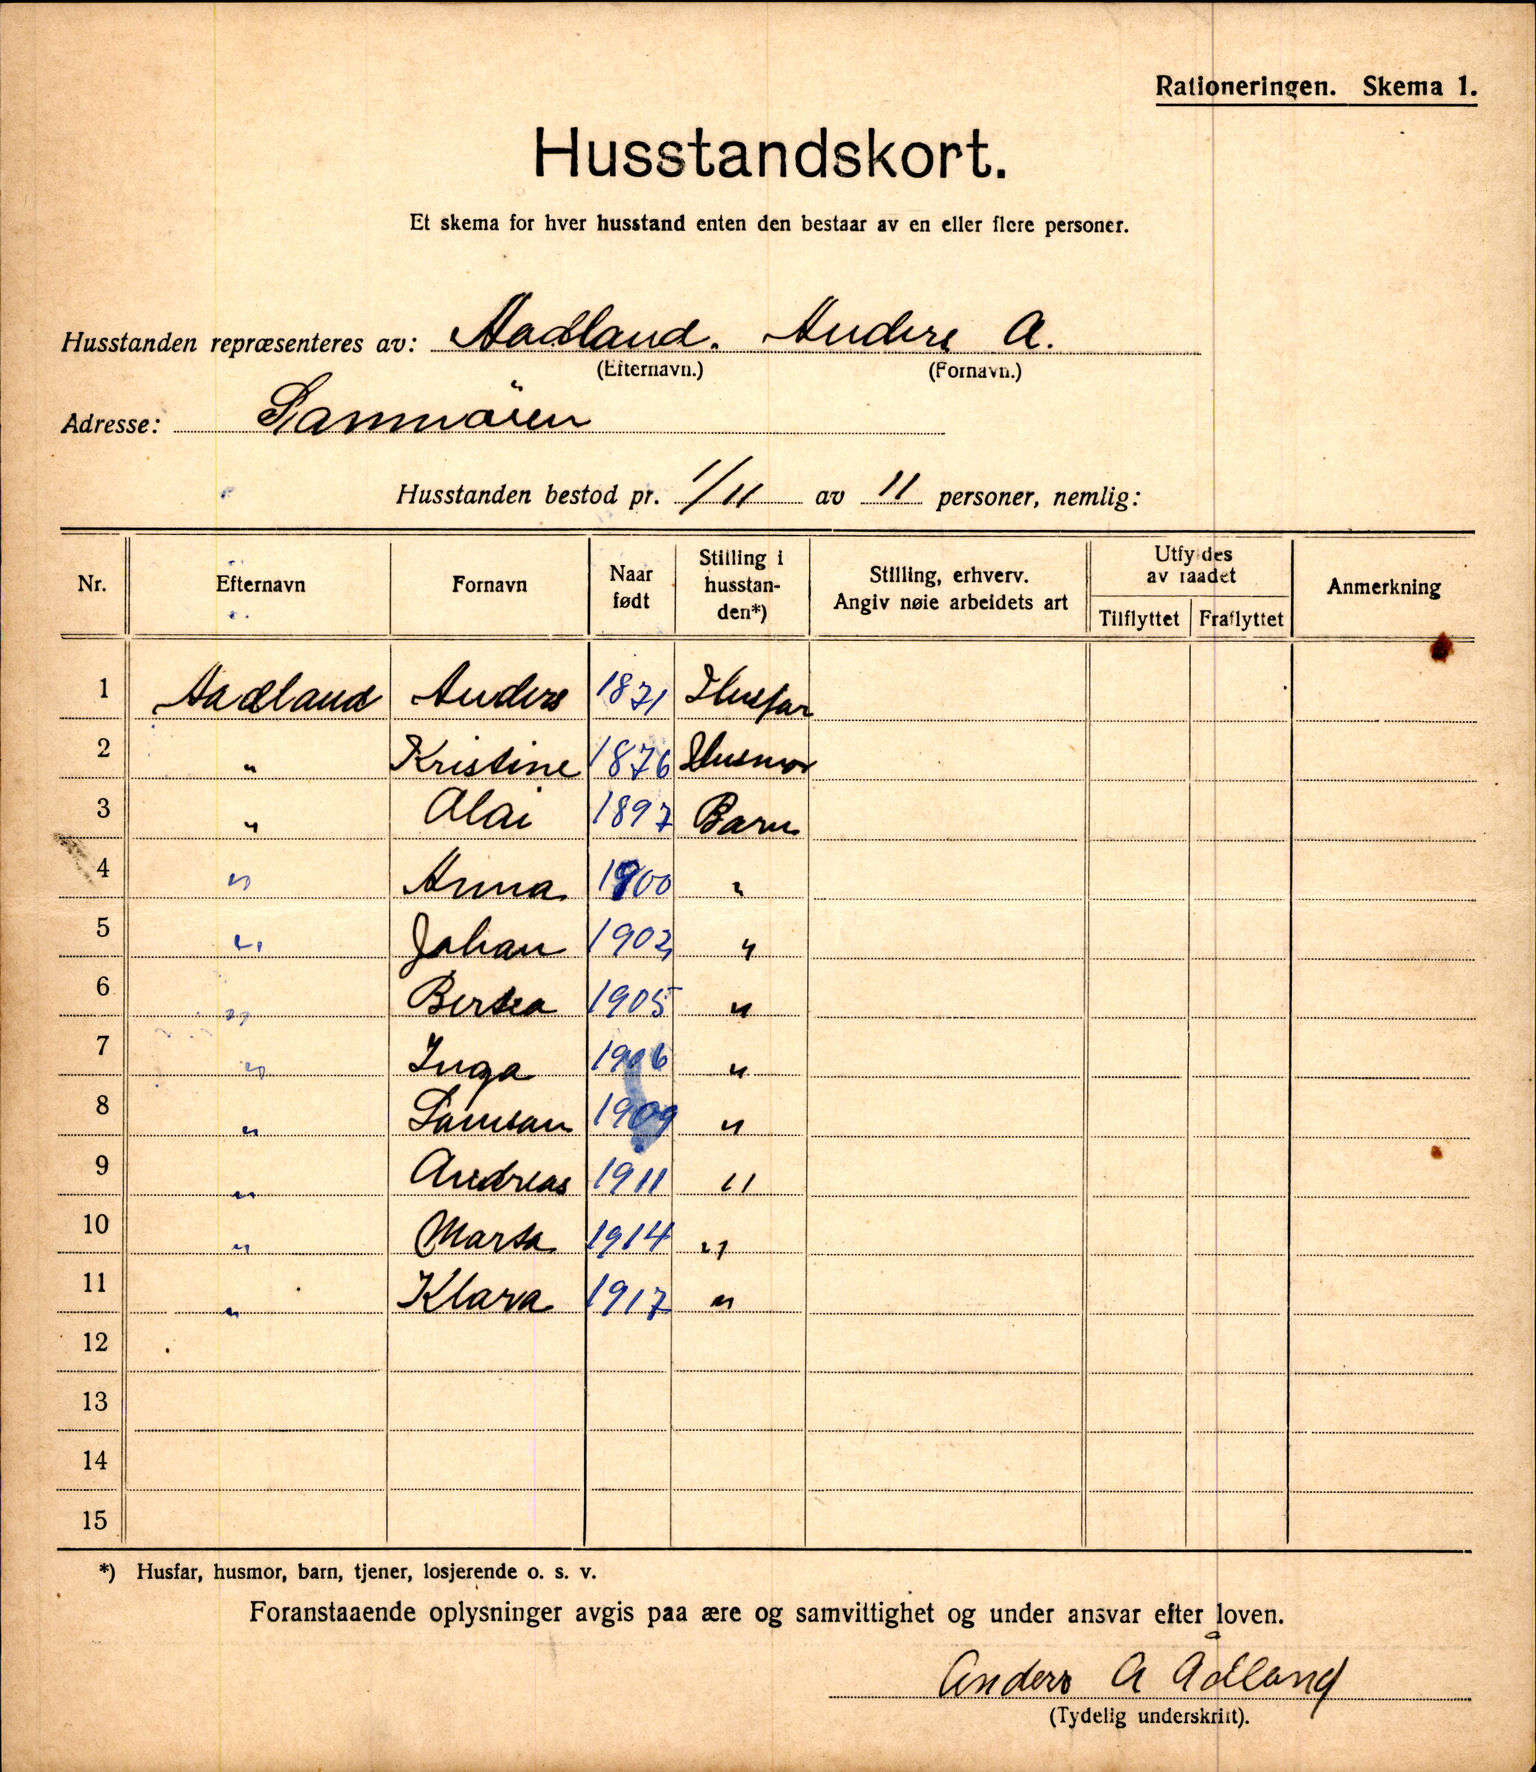 Rationeringen. Skema 1.
Husstandskort.
Et skema for hver husstand enten den bestaar av en eller flere personer.
Husstanden repræsenteres av: Aadland. Anders A.
(Efternavn.) (Fornavn.)
Adresse: Samnöien
Husstanden bestod pr. 1/11 av 11 personer, nemlig:
Nr. Efternavn Fornavn Naar født Stilling i husstanden*) Stilling, erhverv. Angiv nøie arbeidets art Utfyldes av raadet Tilflyttet Fraflyttet Anmerkning
1 Aadland Anders 1871 Husfar
2 " Kristine 1876 Husmor
3 " Olai 1897 Barn
4 " Anna 1900 "
5 " Johan 1902 "
6 " Bertea 1905 "
7 " Inga 1906 "
8 " Samson 1909 "
9 " Andreas 1911 "
10 " Marta 1914 "
11 " Klara 1917 "
12
13
14
15
*) Husfar, husmor, barn, tjener, losjerende o. s. v.
Foranstaaende oplysninger avgis paa ære og samvittighet og under ansvar efter loven.
Anders A Ådland
(Tydelig underskrift).